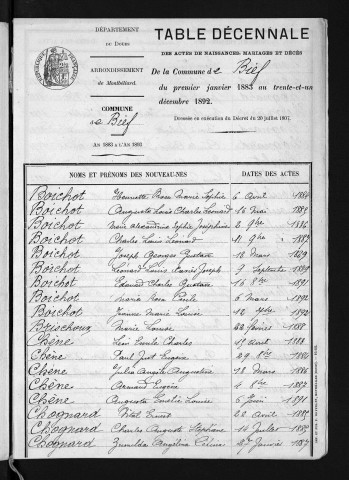 DÉPARTEMENT
du Doubs
ARRONDISSEMENT
de Montbéliard
COMMUNE
de Bief
AN 1883 A L'AN 1892
TABLE DÉCENNALE
DES ACTES DE NAISSANCES, MARIAGES ET DÉCÈS
De la Commune de Bief
du premier janvier 1883 au trente-et-un
décembre 1892.
Dressée en exécution du Décret du 20 juillet 1807.
NOMS ET PRÉNOMS DES NOUVEAU-NÉS DATES DES ACTES
Boichot Henriette Rose Marie Sophie 6 Avril 1884
Boichot Auguste Louis Charles Léonard 16 Mai 1885
Boichot Marie Alexandrine Sophie Joséphine 2 9bre 1886
Boichot Charles Louis Léonard 11 9bre
Boichot Joseph Georges Gustave 18 Mars 1889
Boichot Léonard Louis Joseph 9 Septembre 1889
Boichot Edouard Charles Gustave 16 8bre 1891
Boichot Maria Rosa 6 Mars 1892
Boichot Jeanne Marie Louise 1892
Marie Louise Février 1888
Chêne Léon Emile Charles Avril 1883
Chêne Paul Just Eugène 29 8bre
Chêne Julia Angèle Augustine 18 Mars 1886
Chêne Armand Eugène 1887
Chêne Augusta Emélie Louise 6 Juin 1891
Chognard 22 Avril 1885
Chognard Charles Auguste Stéphane 14 Juillet 1885
Chognard Zénilda Angélina Janvier 1887